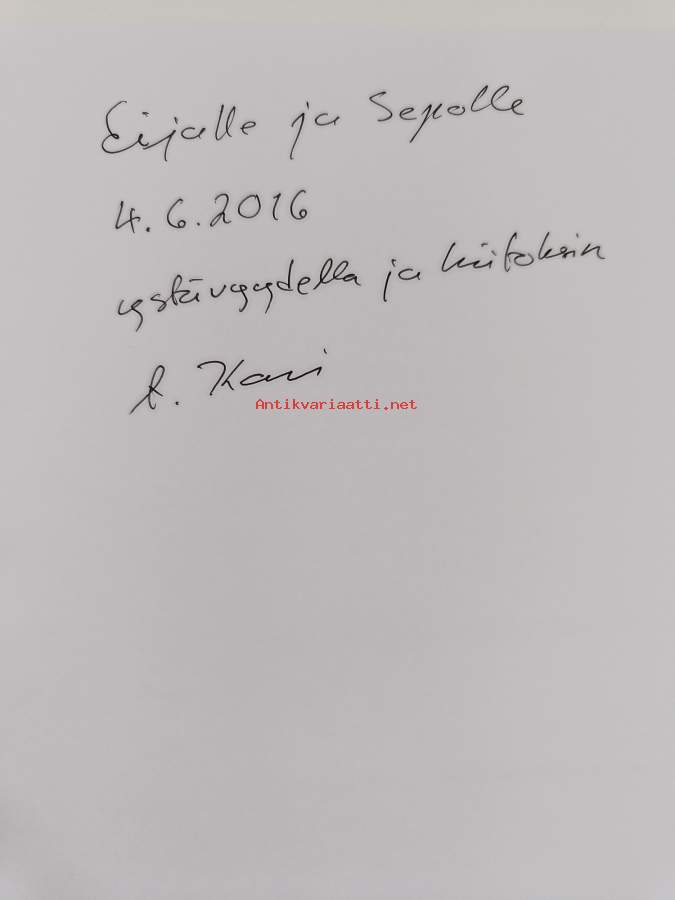 Eijalle ja Sepolle
4.6.2016
ystävyydellä ja kiitoksin
t. Kari
Antikvariaatti.net